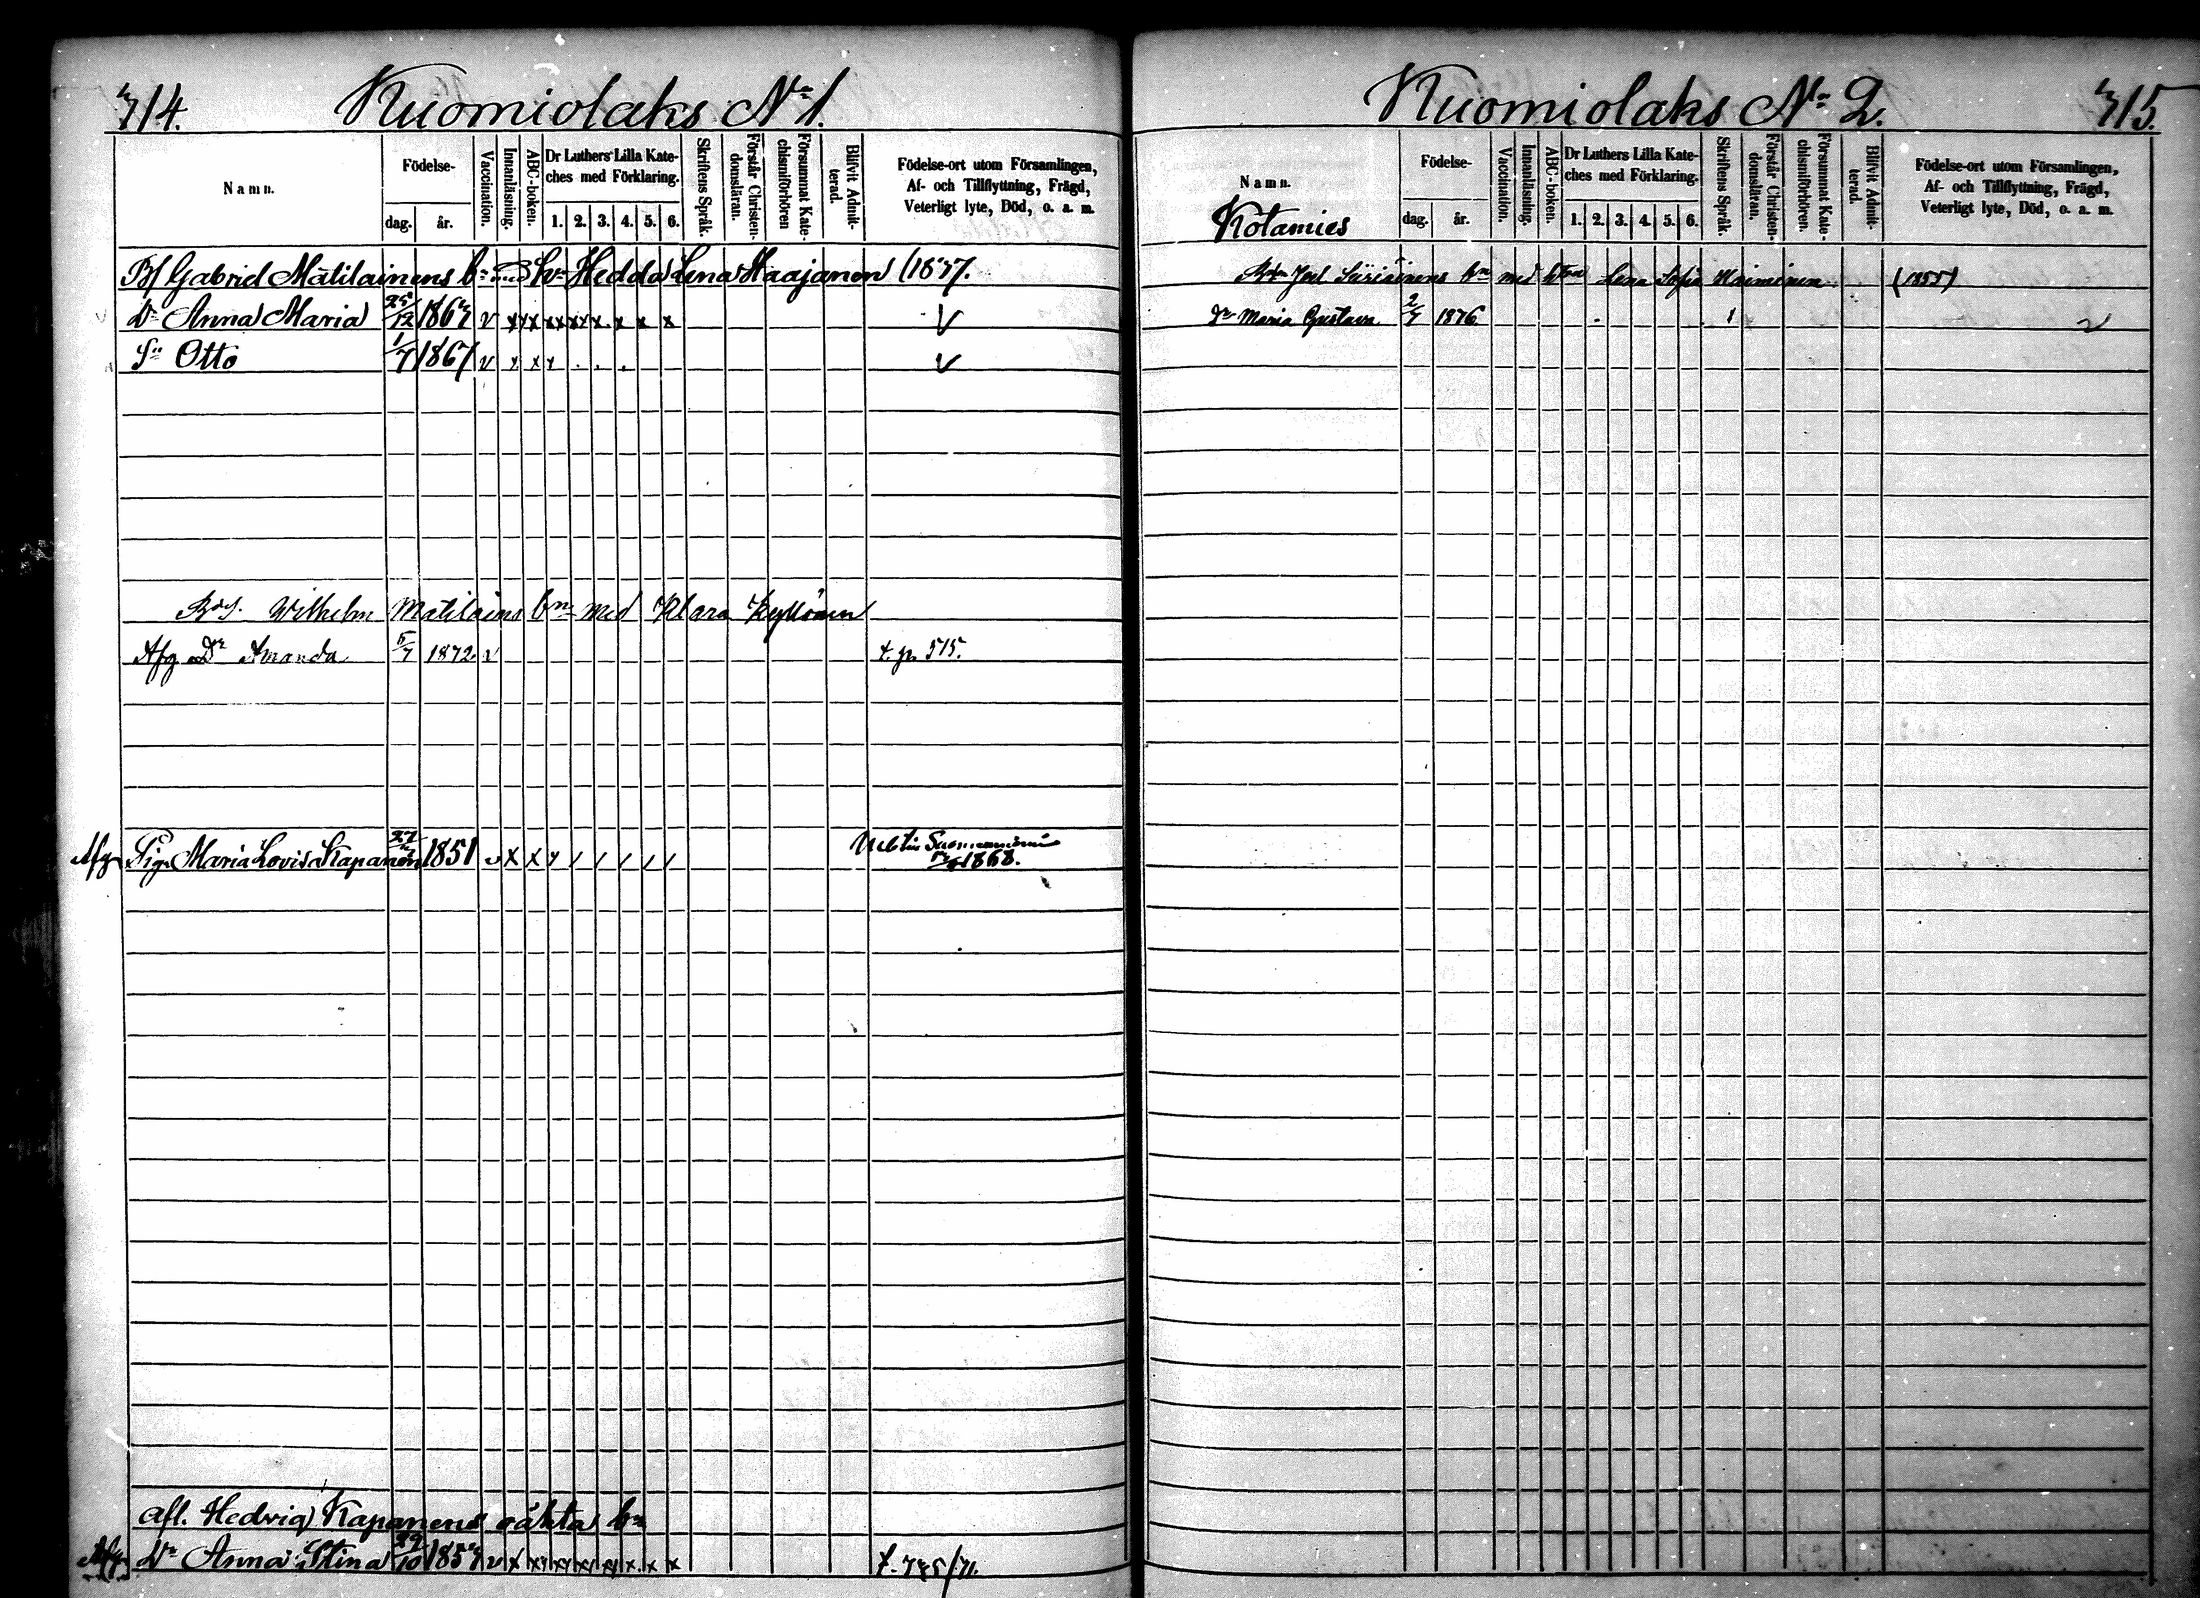 714.
Kuomiolaks No 1.
Namn.
Födelse-
dag.
år.
Vaccination.
Innanläsning.
ABC-boken.
Dr Luthers Lilla Kate-
ches med Förklaring.
1. 2. 3. 4. 5. 6.
Skriftens Språk.
Förstår Christen-
domsläran.
Försummat Kate-
chismiförhören
Blifvit Admit-
terad.
Födelse-ort utom Församlingen,
Af- och Tillflyttning, Frägd,
Veterligt lyte, Död, o. a. m.
Bf Gabriel Matilainens bn med hu Hedda Lena Haajanen (1837.
Dr Anna Maria 25/12 1863 v x xx xx xx x x x x v
Sn Otto 1/7 1867 v x x x . . . v
Wilhelm Matilains bn med Klara
Afg Dr Amanda 5/7 1872. v t. p. 515.
Afg Pig. Maria Lovisa Kapanen 1851 v x x x / / / / /
1868.
afl. Hedvig Kapanens oäkta bn
Afg. Dr Anna Stina 29/10 1853 v x xx xx xx xx x. x x t. 785/71.
Kuomiolaks No 2.
715.
Namn.
Kotamies
Födelse-
dag.
år.
Vaccination.
Innanläsning.
ABC-boken.
Dr Luthers Lilla Kate-
ches med Förklaring.
1. 2. 3. 4. 5. 6.
Skriftens Språk.
Förstår Christen-
domsläran.
Försummat Kate-
chismiförhören.
Blifvit Admit-
terad.
Födelse-ort utom Församlingen,
Af- och Tillflyttning, Frägd,
Veterligt lyte, Död, o. a. m.
Joel bn med Lena Sofia (1855)
Dr Maria Gustava 2/7 1876. v